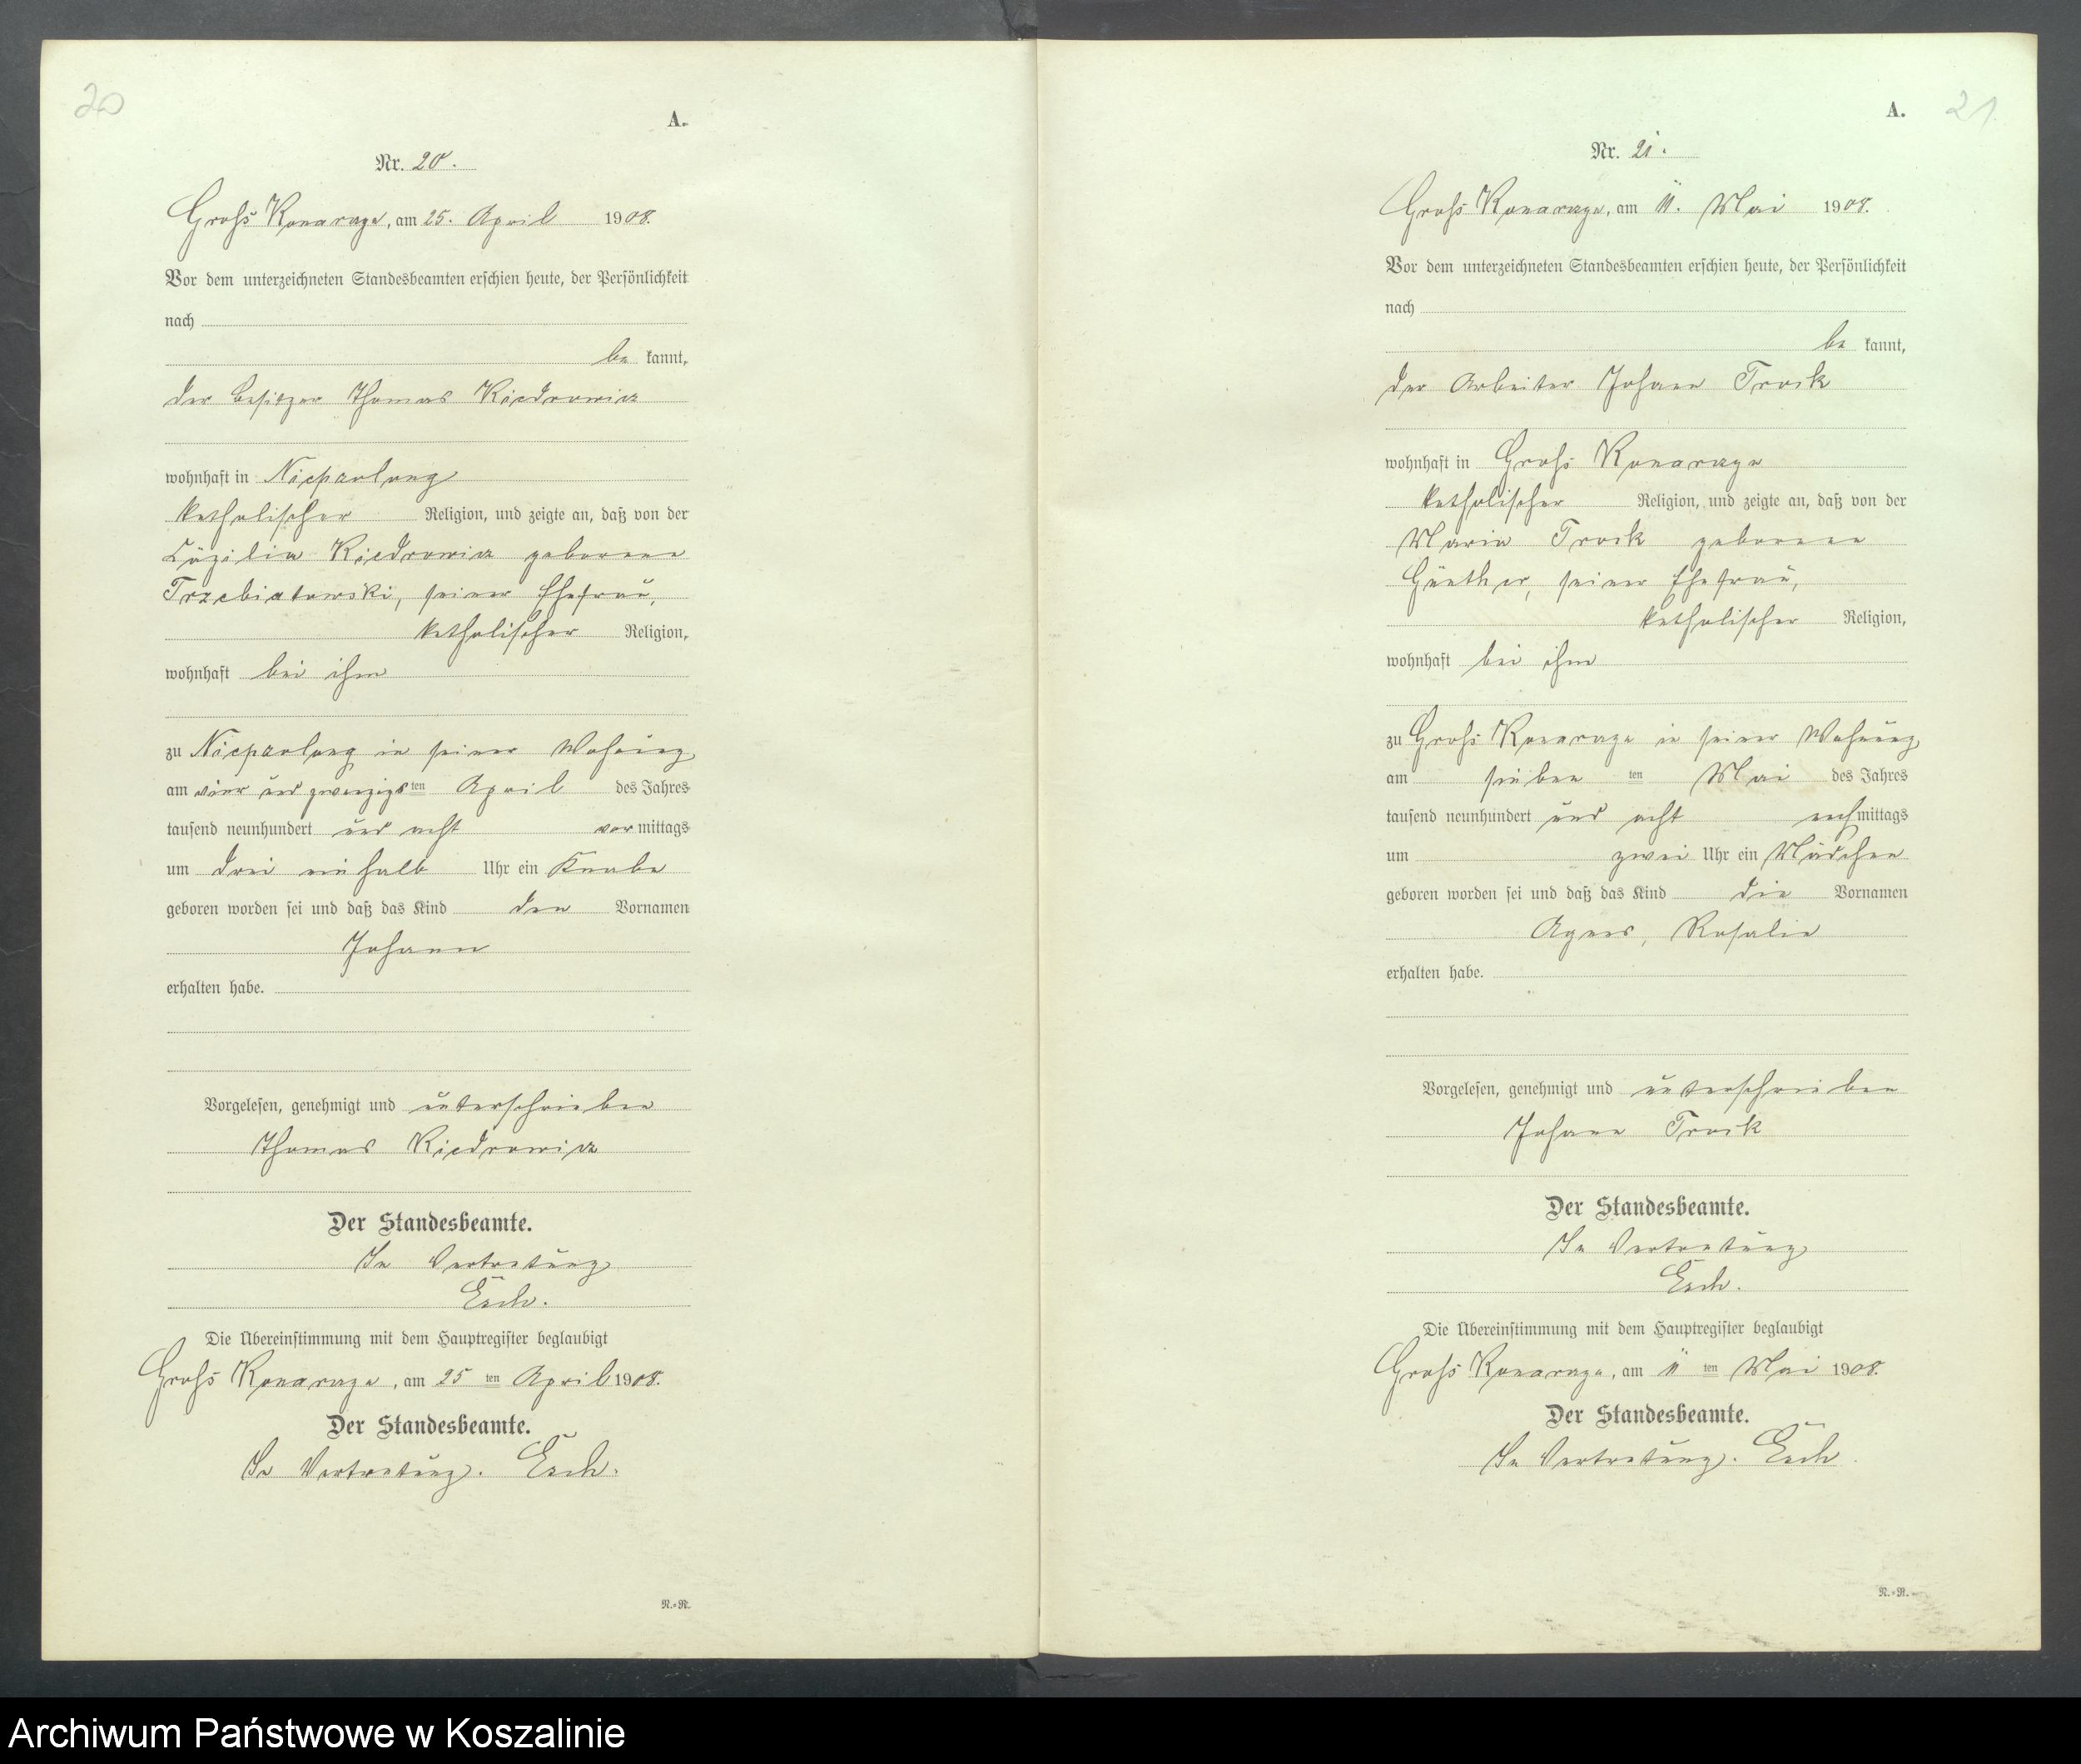 20
A.
Nr. 20.
Groß Konarzyn, am 25. April 1908.
Vor dem unterzeichneten Standesbeamten erschien heute, der Persönlichkeit
nach
be kannt,
der Besitzer Thomas Kiedrowicz
wohnhaft in Nierzostong
katholischer Religion, und zeigte an, daß von der
Cäzilia Kiedrowicz geborenen
Trzebiatowski, seiner Ehefrau,
katholischer Religion,
wohnhaft bei ihm
zu in seiner Wohnung
am vier und zwanzigsten April des Jahres
tausend neunhundert und acht vor mittags
um drei einhalb Uhr ein Knabe
geboren worden sei und daß das Kind den Vornamen
Johann
erhalten habe.
Vorgelesen, genehmigt und unterschrieben
Thomas Kiedrowicz
Der Standesbeamte.
In Vertretung
Esch.
Die Übereinstimmung mit dem Hauptregister beglaubigt
Groß Konarzyn, am 25 ten April 1908.
Der Standesbeamte.
In Vertretung. Esch.
N.-R.
A.
21
Nr. 21.
Groß Konarzyn, am 11. Mai 1908.
Vor dem unterzeichneten Standesbeamten erschien heute, der Persönlichkeit
nach
be kannt,
der Arbeiter Johann Trock
wohnhaft in Groß Konarzyn
katholischer Religion, und zeigte an, daß von der
Maria Trock geborenen
Günther, seiner Ehefrau,
katholischer Religion,
wohnhaft bei ihm
zu Groß Konarzyn in seiner Wohnung
am sieben ten Mai des Jahres
tausend neunhundert und acht nachmittags
um zwei Uhr ein Mädchen
geboren worden sei und daß das Kind die Vornamen
Agnes, Rosalie
erhalten habe.
Vorgelesen, genehmigt und unterschrieben
Johann Trock
Der Standesbeamte.
In Vertretung
Esch.
Die Übereinstimmung mit dem Hauptregister beglaubigt
Groß Konarzyn, am 11 ten Mai 1908.
Der Standesbeamte.
In Vertretung. Esch
N.-R.
Archiwum Państwowe w Koszalinie